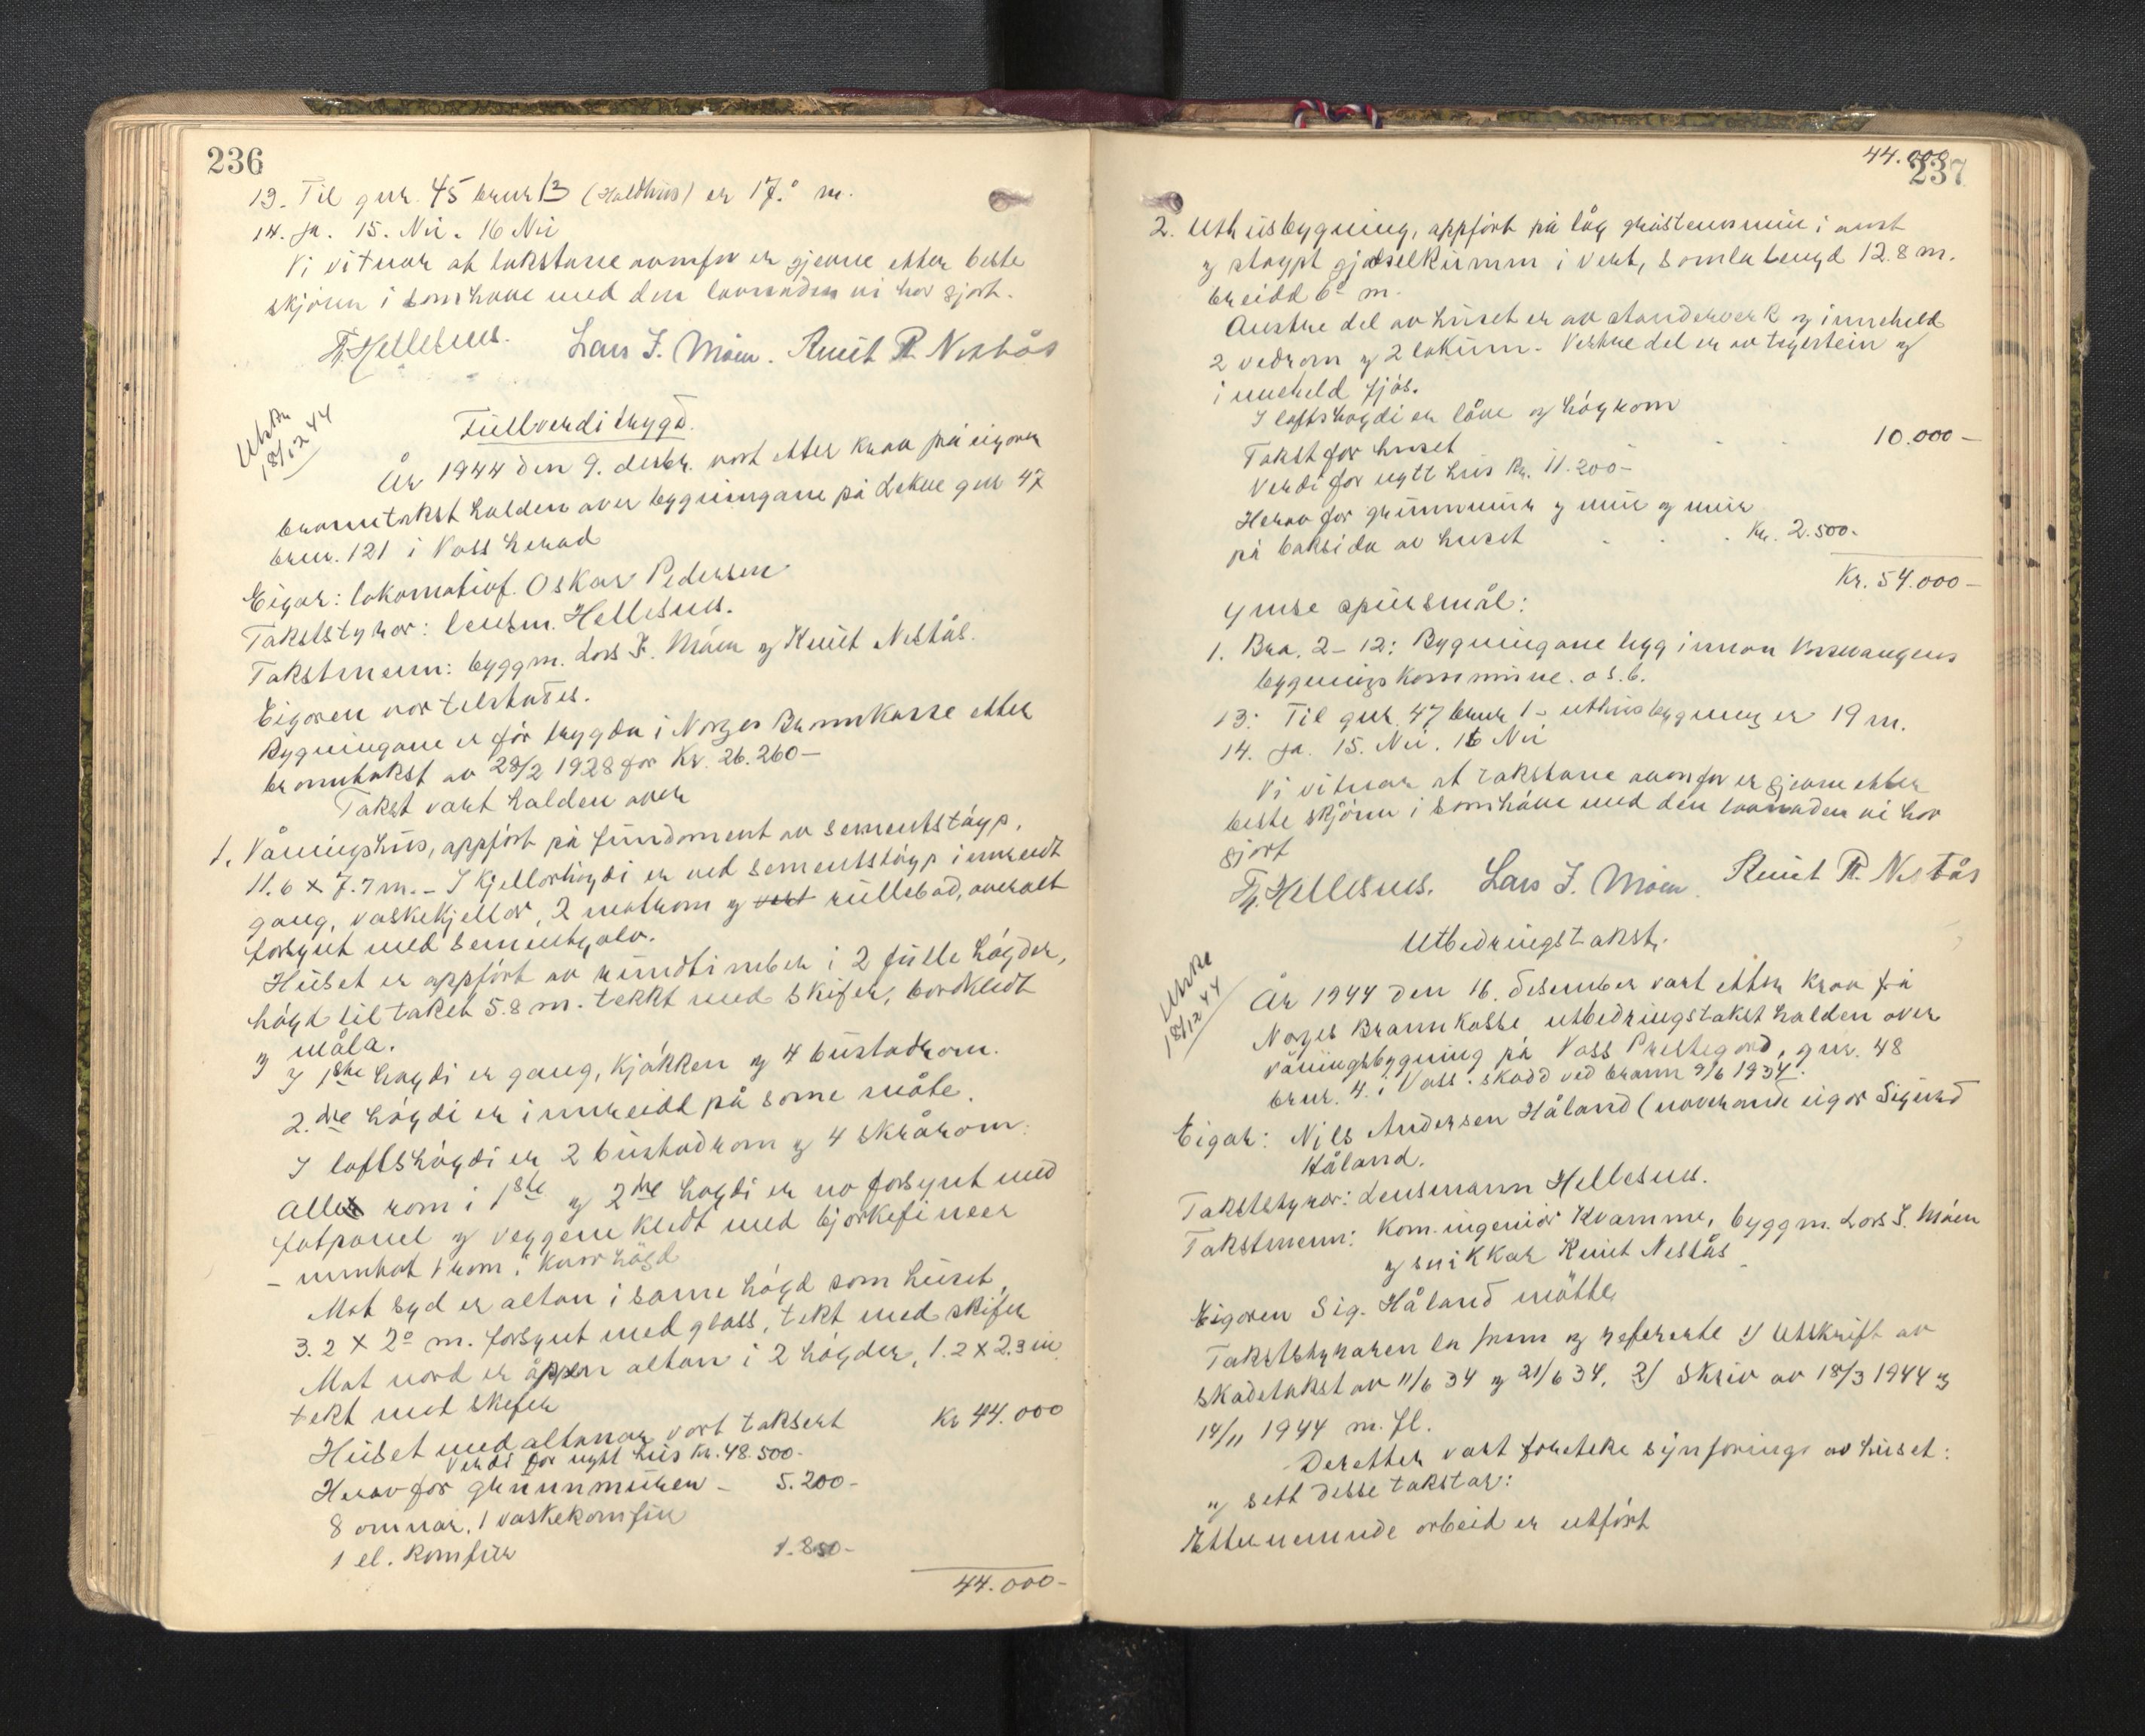 236
13. Til gnr. 45 brnr 13 (Haldhus) er 17.° m.
14. Ja. 15. Nei. 16 Nei
Vi vitnar at takstane ovanfor er gjevne etter beste
skjönn i samhøve med den lovnaden vi har gjort.
Hellesnes. Lars J. Möen. Knut R. Nestås
Utskr.
18/12 44
Fullverditrygd.
År 1944 den 9. desbr. vart etter krav på eigaren
branntakst halden over bygningane på Lekve gnr 47
brnr. 121 i Voss herad
Eigar: lokomotivf. Oskar Pedersen
Takststyrar: lensm. Hellesnes.
Takstmenn: byggm. Lars J. Möen og Knut Nestås.
Eigaren var tilstades.
Bygningane er för trygda i Norges Brannkasse etter
branntakst av 28/2 1928 for Kr. 26.260-
Takst vart halden over
1. Våningshus, oppfört på fundament av sementstöyp,
11.6 x 7.7 m. - I kjellarhögdi er ved sementstöyp innreidt
gang, vaskekjellar, 2 matrom og rullebod, overalt
forsynt med sementgolv.
Huset er oppfört av rundtimber i 2 fulle högder,
högd til taket 5.8 m. tekkt med skifer, bordkledt
og måla.
I 1ste högdi er gang, kjökken og 4 bustadrom.
2.dre högdi er innreidd på same måte.
I loftshögdi er 2 bustadrom og 4 skrårom.
Alle rom i 1ste og 2dre högdi er no forsynt med
fotpanel og veggene kledt med bjørkefineer
- unntat 1 rom i kvar högd
Mot syd er altan i same högd som huset,
3.2 x 2° m. forsynt med glass, tekt med skifer
Mot nord er åpen altan i 2 högder, 1.2 x 2.3 m
tekt med skifer
Huset med altanar vart taksert Kr 44.000
Verdi for nytt hus kr. 48.500-
Herav for grunnmuren - 5.200-
8 omnar, 1 vaskekomfur
1 el. komfur 1.850-
44.000-
44.000
237
2. Uthusbygning, oppfört på låg gråsteinsmur i aust
og stöypt gjødselkumm i vest, samla lengd 12.8 m.
breidd 6° m.
Austre del av huset er av standerverk og inneheld
2 vedrom og 2 lokum. Vestre del er av teglstein og
inneheld fjös.
I loftshögdi er låve og höyrom
Takst for huset - - 10.000-
Verdi for nytt hus kr. 11.200-
Herav for grunnmur og mur og mur
på baksida av huset - - - Kr. 2.500-
Kr. 54.000-
Ymse spursmål:
1. Bra. 2-12: Bygningane ligg innan Vossevangens
bygningskommune. o.s.b.
13: Til gnr. 47 brnr 1 - uthusbygning er 19 m.
14. Ja. 15. Nei. 16 Nei
Vi vitnar at takstane ovanfor er gjevne etter
beste skjönn i samhöve med den lovnaden vi har
gjort
Hellesnes. Lars J. Möen. Knut R. Nestås
Utbedringstakst.
Utskr
18/12 44
År 1944 den 16. desember vart etter krav frå
Norges Brannkasse utbedringstakst halden over
våningsbygning på Voss Prestegard, gnr. 48
brnr. 4. i Voss. skadd ved brann 9/6 1934.
Eigar: Nils Andersen Håland (noverande eigar Sigurd
Håland.
Takststyrar: Lensmann Hellesnes.
Takstmenn: Kom. ingeniör Kvamme, byggm. Lars J. Möen
og snikkar Knut Nestås
Eigaren Sig. Håland mötte
Takststyraren la fram og refererte 1/ Utskrift av
skadetakst av 11/6 34 og 21/6 34. 2/ Skriv av 18/3 1944 og
14/11 1944 m. fl.
Deretter vart foreteke synforing av huset:
og sett desse takstar:
Etternemnde arbeid er utfört